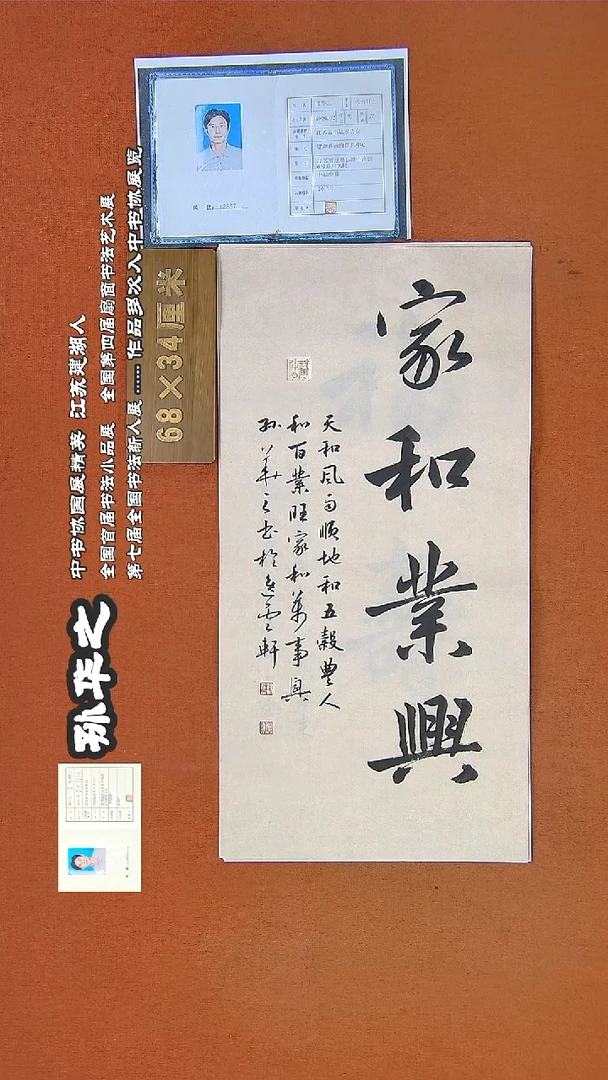 家和業興
天和風雨順地和五穀豐人
和百業旺家和萬事興
孫華之书於逸雲軒
68×34厘米
孙华之
中书协国展精英 江苏建湖人
全国首届书法小品展 全国第四届扇面书法艺术展
第七届全国书法新人展 ······作品多次入中书协展览